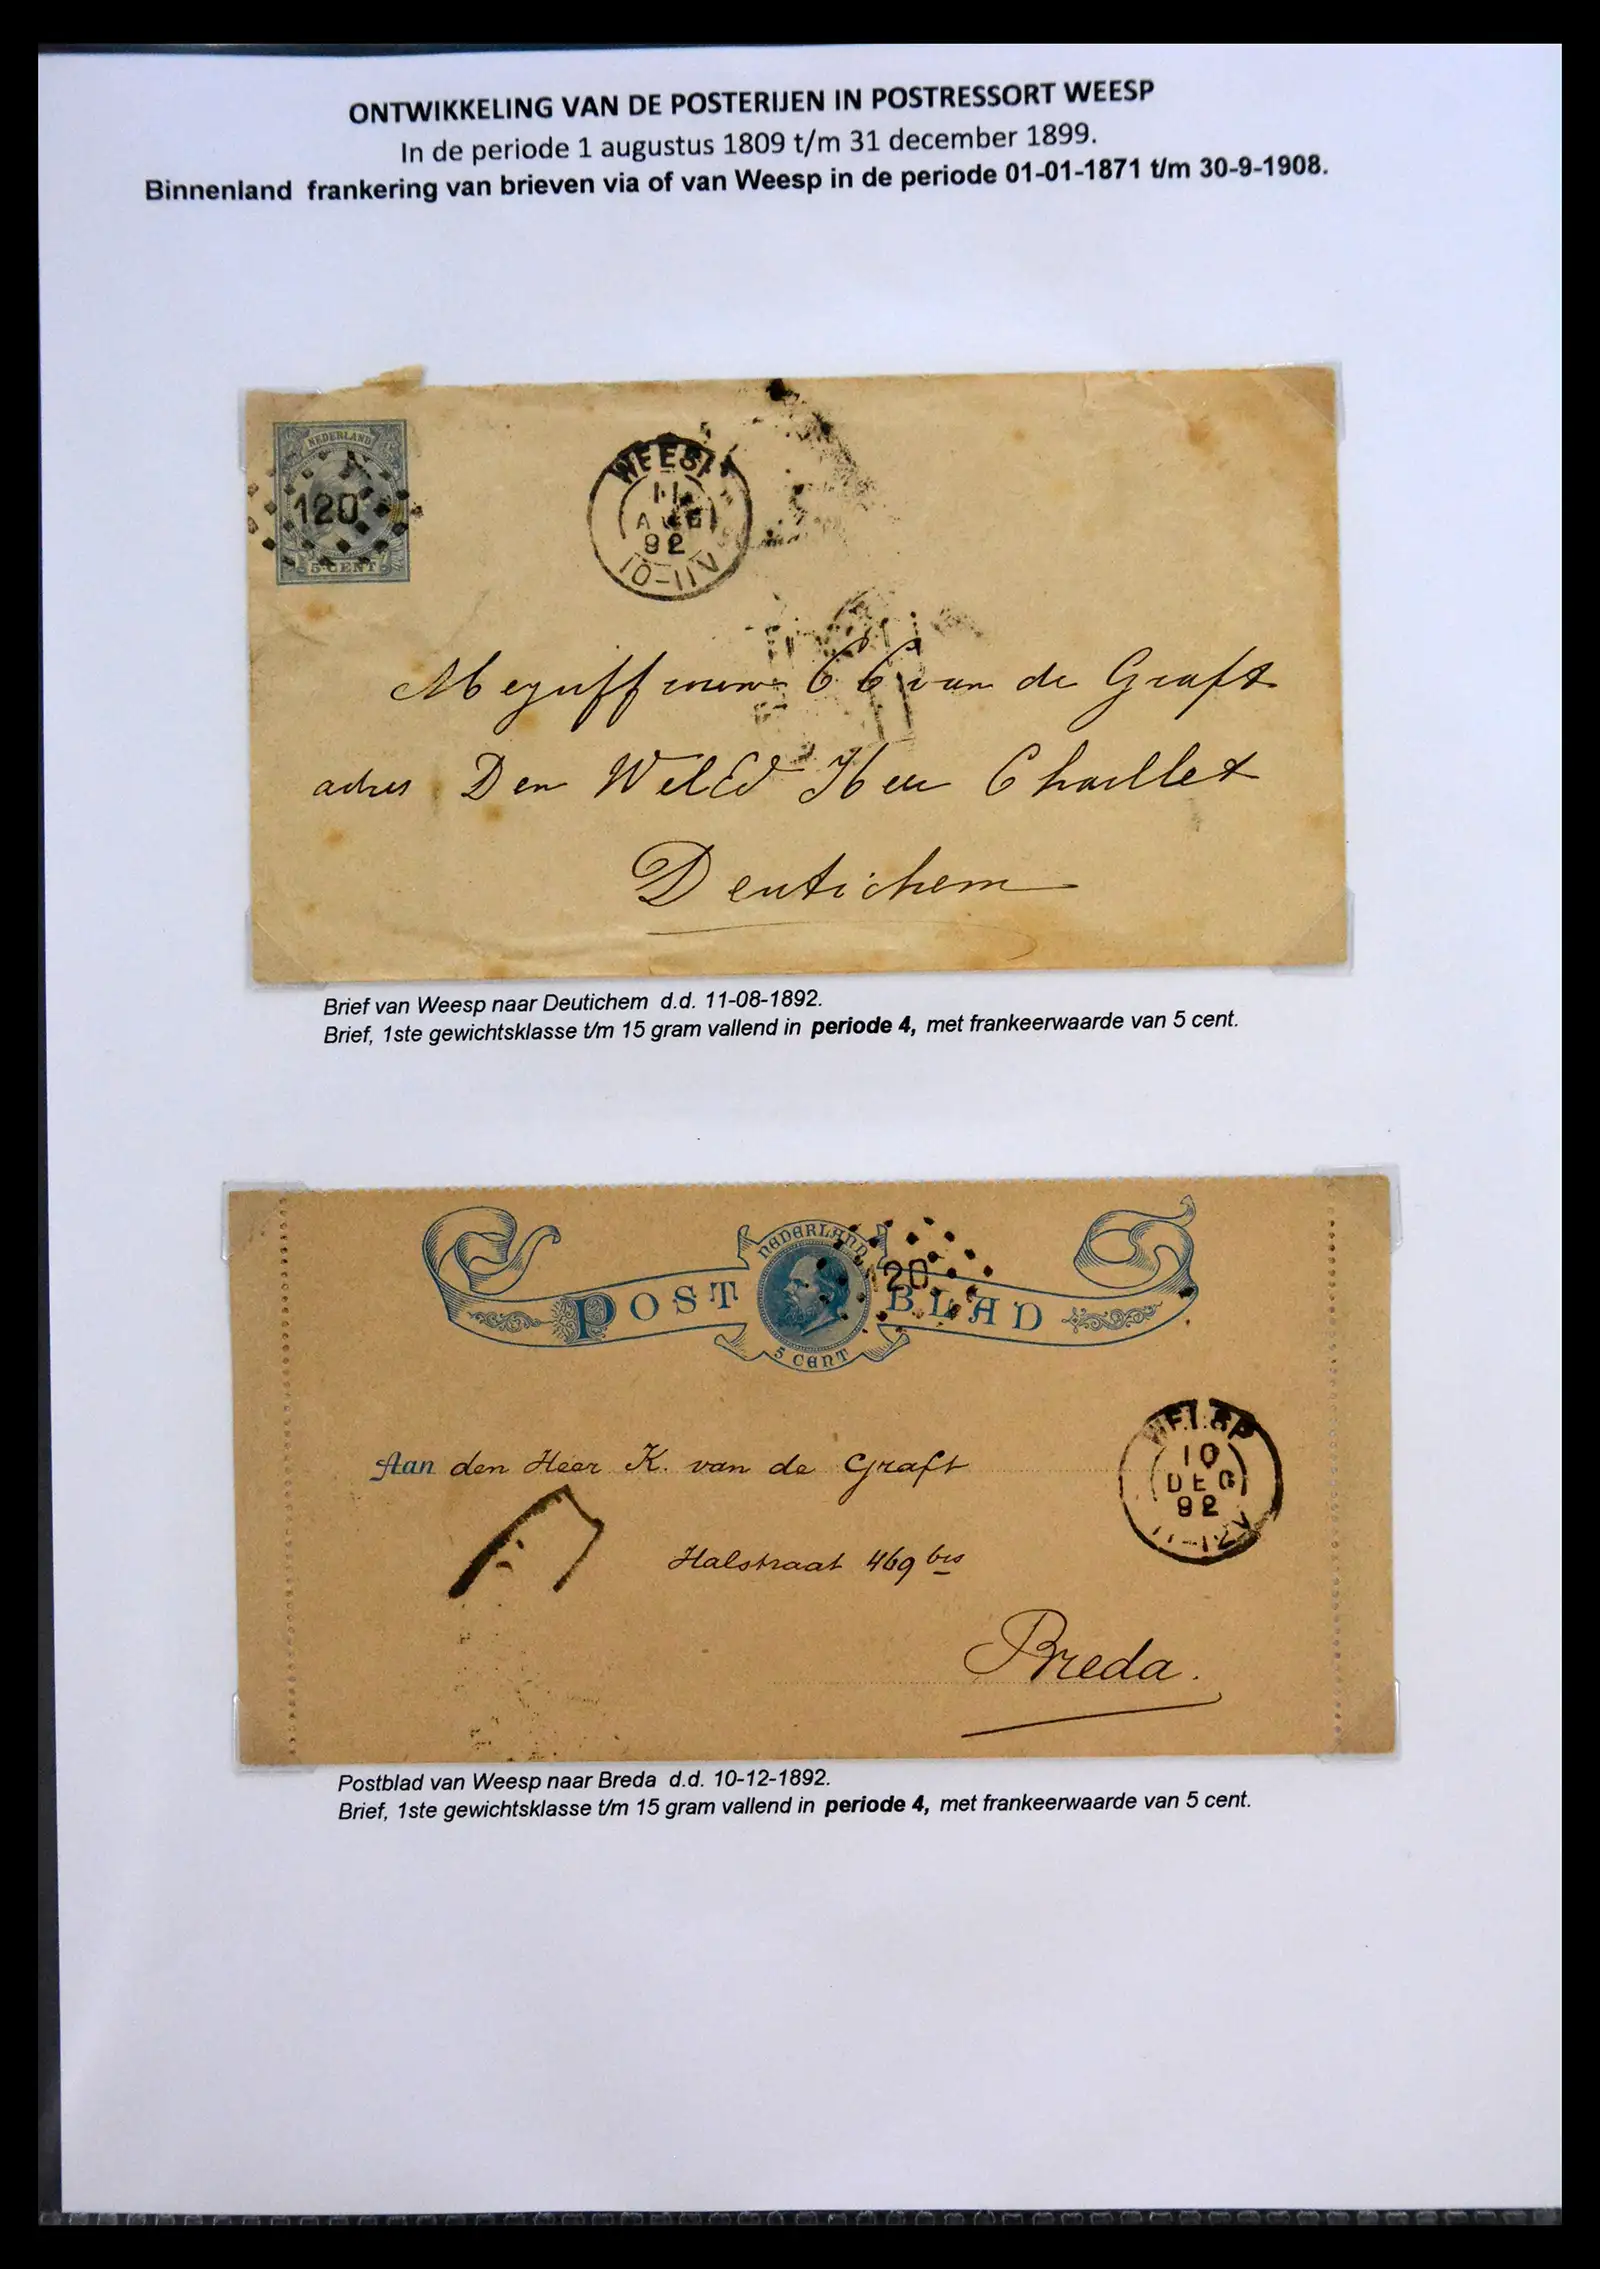 ONTWIKKELING VAN DE POSTERIJEN IN POSTRESSORT WEESP
In de periode 1 augustus 1809 t/m 31 december 1899.
Binnenland frankering van brieven via of van Weesp in de periode 01-01-1871 t/m 30-9-1908.
NEDERLAND
120
5 CENT
WEESP
11
AUG
92
10-11V
Mejuffrouw C C van de Graft
adres Den WelEd Heer Chaillet
Deutichem
Brief van Weesp naar Deutichem d.d. 11-08-1892.
Brief, 1ste gewichtsklasse t/m 15 gram vallend in periode 4, met frankeerwaarde van 5 cent.
NEDERLAND
120
POST BLAD
5 CENT
WEESP
10
DEC
92
11-12V
Aan den Heer K. van de Graft
Halstraat 469 bis
Breda.
Postblad van Weesp naar Breda d.d. 10-12-1892.
Brief, 1ste gewichtsklasse t/m 15 gram vallend in periode 4, met frankeerwaarde van 5 cent.